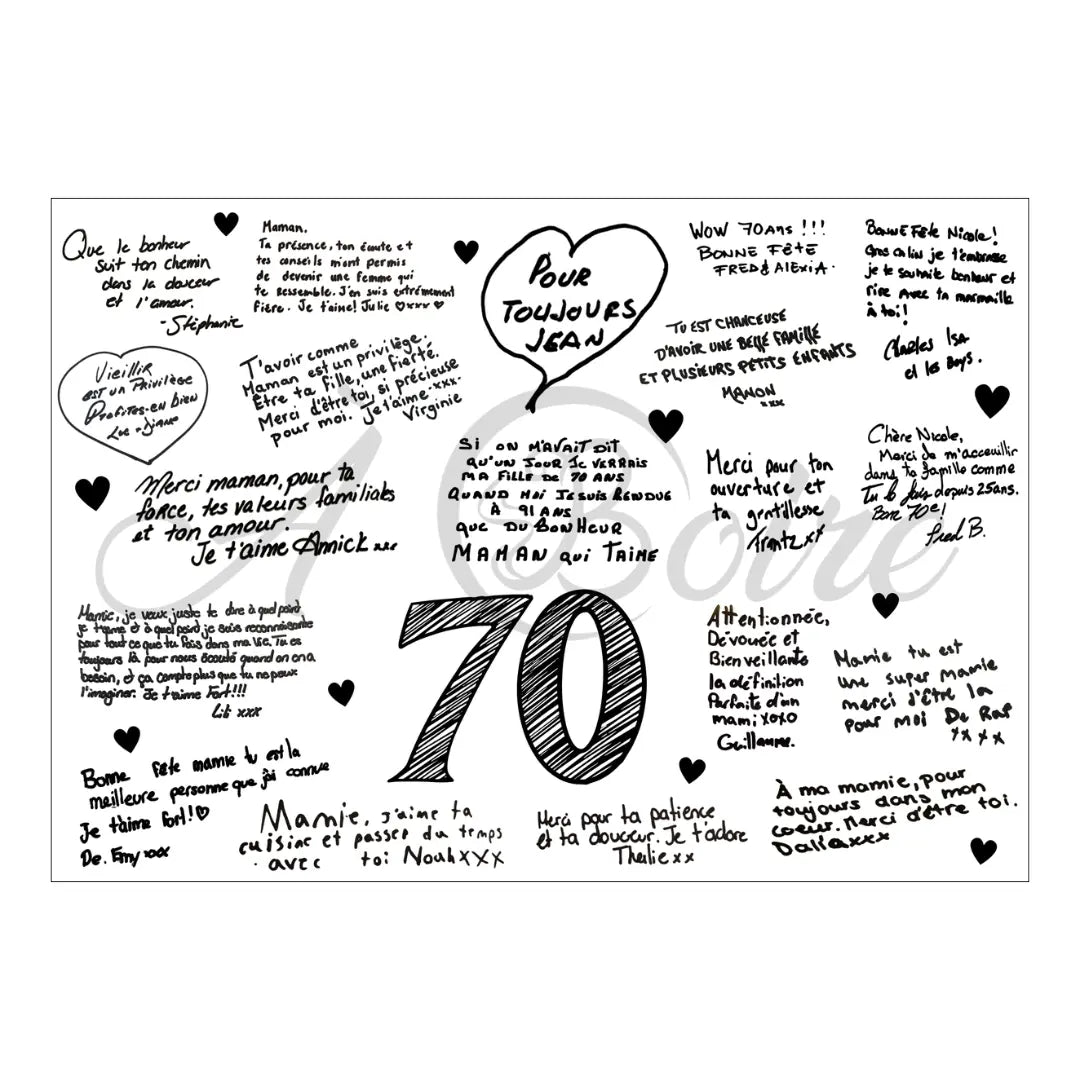 Que le bonheur
suit ton chemin
dans la douceur
et l'amour.
-Stéphanie
Maman,
Ta présence, ton écoute et
tes conseils m'ont permis
de devenir une femme qui
te ressemble. J'en suis extrêmement
fière. Je t'aime! Julie ♡xxx♡
POUR
TOUJOURS
JEAN
WOW 70ANS !!!
BONNE FÊTE
FRED & ALEXIA.
BONNE Fête Nicole!
Gros calin je t'embrasse
je te souhaite bonheur et
rire avec ta marmaille
à toi!
Charles Isa
et les boys.
Vieillir
est un Privilège
Profites-en bien
Luc - Diane
T'avoir comme
Maman est un privilège.
Être ta fille, une fierté.
Merci d'être toi, si précieuse
pour moi. Je t'aime xxx
Virginie
TU EST CHANCEUSE
D'AVOIR UNE BELLE FAMILLE
ET PLUSIEURS PETITS ENFANTS
MANON
xxx
Merci maman, pour ta
force, tes valeurs familiales
et ton amour.
Je t'aime Annick xxx
SI ON M'AVAIT DIT
QU'UN JOUR JE VERRAIS
MA FILLE DE 70 ANS
QUAND MOI JE SUIS RENDUE
À 91 ANS
QUE DU BONHEUR
MAMAN QUI T'AIME
Merci pour ton
ouverture et
ta gentillesse
Frantz xx
Chère Nicole,
Merci de m'acceuillir
dans ta famille comme
Tu le fais depuis 25ans.
Bonne 70e!
Fred B.
A Boire
Mamie, je veux juste te dire à quel point
je t'aime et à quel point je suis reconnaissante
pour tout ce que tu fais dans ma vie. Tu es
toujours là pour nous écouté quand on en a
besoin, et ça compte plus que tu ne peux
l'imaginer. Je t'aime fort!!!
Lili xxx
70
Attentionnée,
Dévouée et
Bienveillante
la définition
Parfaite d'un
mami xoxo
Guillaume.
Mamie tu est
une super mamie
merci d'être la
pour moi De Raf
xxxx
Bonne fête mamie tu est la
meilleure personne que j'ai connue
Je t'aime fort!♡
De. Emy xoxx
Mamie, j'aime ta
cuisine et passer du temps
avec toi Noah XXX
Merci pour ta patience
et ta douceur. Je t'adore
Thalie xx
À ma mamie, pour
toujours dans mon
coeur. Merci d'être toi.
Dalia xxx